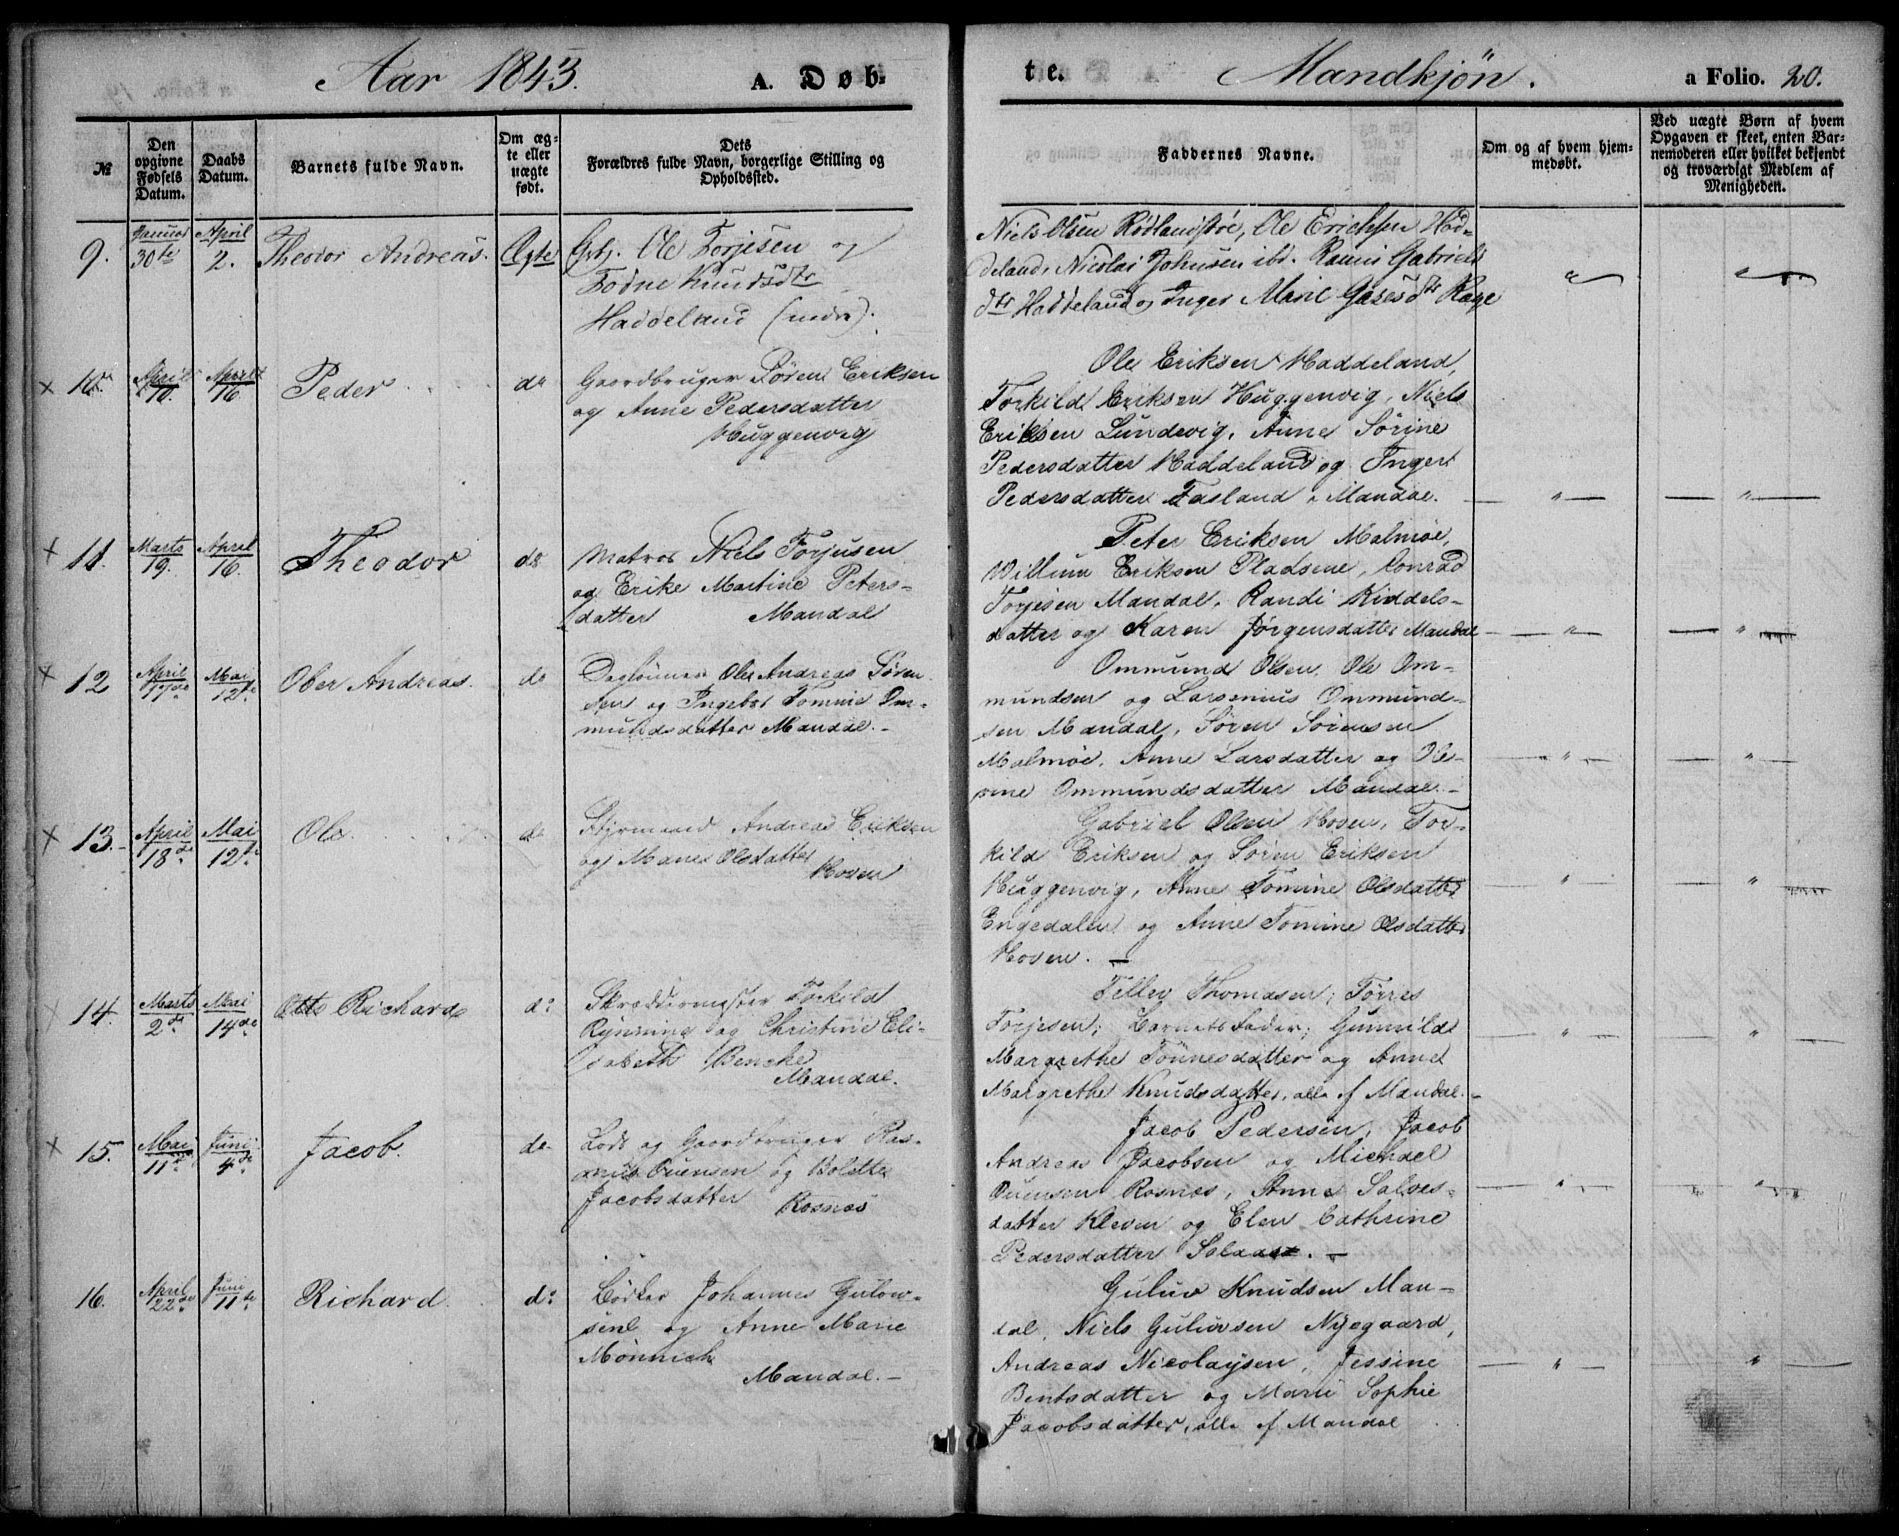 Aar 1843. A. Døb-
te. Mandkjön. a Folio. 20.
№
Den opgivne Fødsels Datum.
Daabs Datum.
Barnets fulde Navn.
Om ægte eller uægte født.
Dets
Forældres fulde Navn, borgerlige Stilling og
Opholdssted.
Faddernes Navne.
Om og af hvem hjem-
medøbt.
Ved uægte Børn af hvem
Opgaven er skeet, enten Bar-
nemoderen eller hvilket bekjendt
og troværdigt Medlem af
Menigheden.
9. Januar 30te April 2. Theodor Andreas. Ægte
Ole Torjesen og
Todne Knudsdtr
Haddeland
Niels Olsen Ole Erichsen Had-
deland, Nicolai Johnsen ibd. Gabriels
dtr Haddeland og Inger Marie
10. April 10. April 16. Peder do
Gaardbruger Sören Eriksen
og Anne Pedersdatter
Huggenvig
Ole Eriksen Haddeland,
Torkild Eriksen Huggenvig, Niels
Eriksen Lundevig, Anne Sörine
Pedersdatter Haddeland og Inger
Pedersdatter Fasland i Mandal.
11. Marts 19. April 16. Theodor do
Matros Niels Torjusen
og Erike Martine Peters-
datter Mandal
Peter Eriksen Malmöe,
Willum Eriksen Pladsene, Conrad
Torjesen Mandal, Randi Kiddels-
datter og Karen Jörgensdatter Mandal
12 April 17de Mai 12te Ober Andreas. do
Daglönner Ole Andreas Sören
sen og Ingebor Tomine Om-
mundsdatter Mandal.-
Ommund Olsen, Ole Om-
mundsen og Larsenius Ommund-
sen Mandal, Sören Sörensen
Malmöe, Anne Larsdatter og Ole-
vine Ommundsdatter Mandal.-
13. April 18de Mai 12te Ole do
Styrmand Andreas Eriksen
og Olsdatter
Hoven
Gabriel Olsen Hoven, Tor-
kild Eriksen og Sören Eriksen
Huggenvig, Anne Tomine Olsdatter
Engedalen og Anne Tomine Olsdatter
Hoven. -
14. Marts 2de Mai 14de Otto Richard do
Skræddermester Torkild
Rynning og Christine Eli-
sabeth Bencke
Mandal.
Tellev Thomasen; Törres
Torjesen; Barnets Fader; Gunnild
Margrethe Tönnesdatter og Anne
Margrethe Knudsdatter, alle af Mandal.-
15. Mai 11te Juni 4de Jacob. do
Lods og Gaardbruger Ras-
mus Ouensen og Bolette
Jacobsdatter Rosnes
Jacob Pedersen, Jacob
Andreas Jacobsen og Michael
Ouensen Rosnes, Anne Salves-
datter Kleven og Elen Cathrine
Pedersdatter -
16. April 22de Juni 11te Richard do
Bödker Johannes Gulow-
sen og Anne Marie
Mönnich
Mandal.-
Guluv Knudsen Man-
dal, Niels Guluvsen Nyegaard,
Andreas Nicolaysen, Jessine
Bentsdatter og Marie Sophie
Jacobsdatter, alle af Mandal